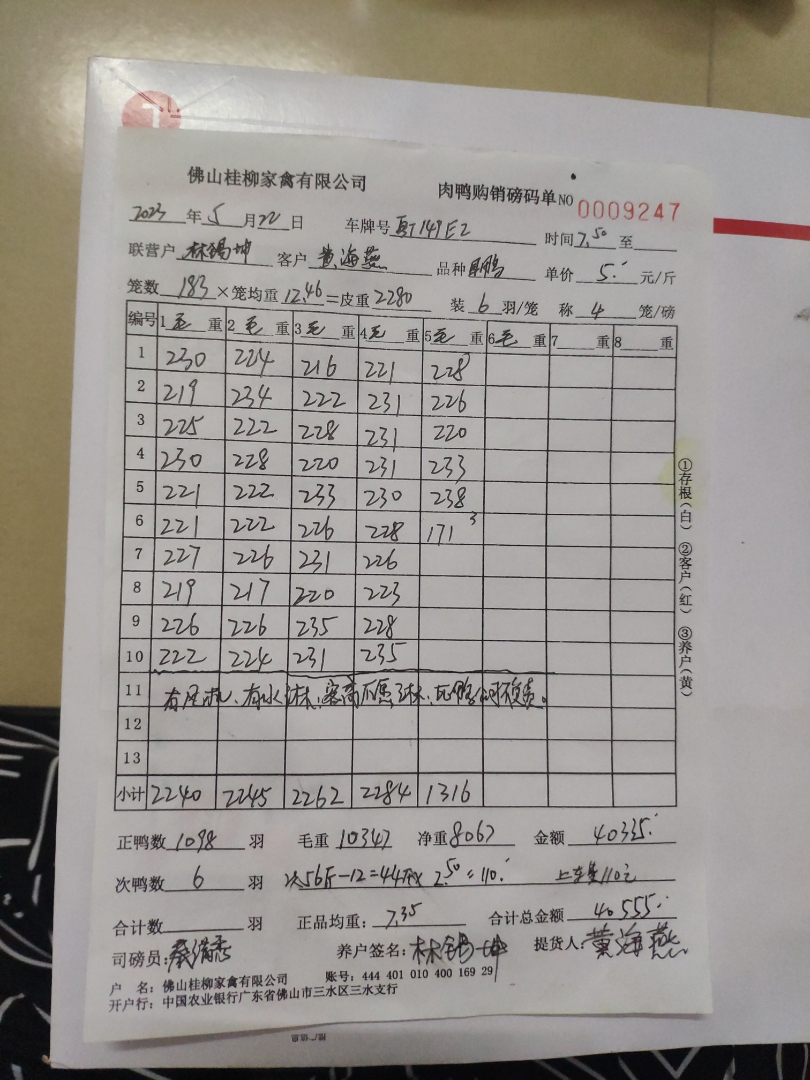 佛山桂柳家禽有限公司 肉鸭购销磅码单 NO 0009247
2023 年 5 月 22 日 车牌号 149E2 时间 7.50 至
联营户 林锡坤 客户 黄海燕 品种 单价 5. 元/斤
笼数 183 ×笼均重 12.46 =皮重 2280 装 6 羽/笼 称 4 笼/磅
编号 1 毛 重 2 毛 重 3 毛 重 4 毛 重 5 毛 重 6 毛 重 7 重 8 重
1 230 224 216 221 228
2 219 234 222 231 226
3 225 222 228 231 220
4 230 228 220 231 233
5 221 222 233 230 238
6 221 222 226 228 171 3
7 227 226 231 226
8 219 217 220 223
9 226 226 235 228
10 222 224 231 235
11 有风机、有水淋,客商不愿淋,死鸭公司不负责。
12
13
小计 2240 2245 2262 2284 1316
正鸭数 1098 羽 毛重 10347 净重 8067 金额 40335.
次鸭数 6 羽 次56斤-12=44斤× 2.50 =110. 上车费110元
合计数 羽 正品均重: 7.35 合计总金额 40555.
司磅员: 养户签名: 林锡坤 提货人: 黄海燕
户 名: 佛山桂柳家禽有限公司 账号: 444 401 010 400 169 29
开户行: 中国农业银行广东省佛山市三水区三水支行
①存根(白) ②客户(红) ③养户(黄)
推广信息